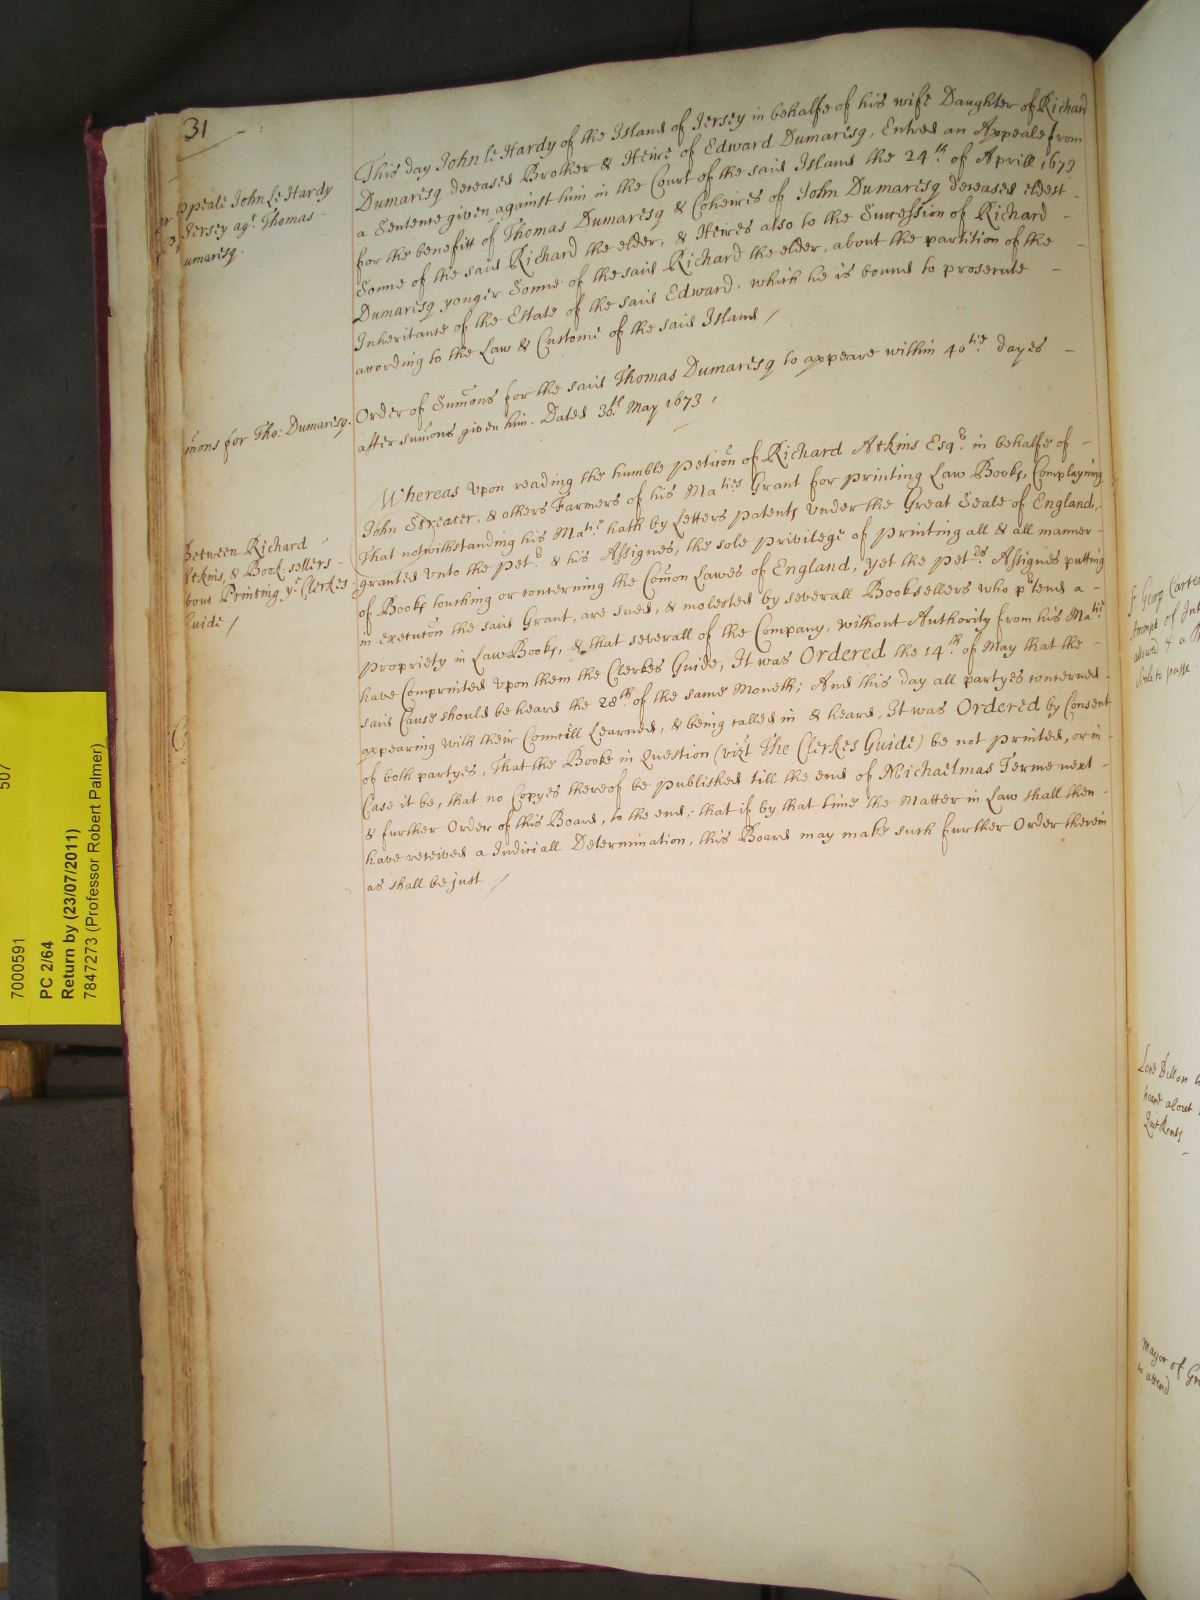 31
ppeale John Le Hardy
Jersey agt. Thomas -
umaresq.
This day John le Hardy of the Island of Jersey in behalfe of his wife Daughter of Richard
Dumaresq deceased Brother & Heire of Edward Dumaresq, Entred an Appeale from
a Sentence given against him in the Court of the said Island the 24th. of Aprill 1673
for the benefitt of Thomas Dumaresq & Coheires of John Dumaresq deceased eldest -
Sonne of the said Richard the elder, & Heires also to the Succession of Richard -
Dumaresq yonger Sonne of the said Richard the elder, about the partition of the -
Inheritance of the Estate of the said Edward, which he is bound to prosecute -
according to the Law & Custome of the said Island /
mons for Tho: Dumaresq.
Order of Sum̃ons for the said Thomas Dumaresq to appeare within 40tie dayes -
after sum̃ons given him. Dated 30th. May 1673 /
between Richard -
Atkins, & Book-sellers -
bout Printing ye Clerkes
Guide /
Whereas upon reading the humble Petic̃on of Richard Atkins Esqr. in behalfe of -
John Streater, & others Farmers of his Maties Grant for printing Law Books, Complayning
That notwithstanding his Matie hath by Letters Patents under the Great Seale of England,
granted unto the Petr. & his Assignes, the sole privilege of printing all & all manner -
of Books touching or concerning the Com̃on Lawes of England, yet the Petrs Assignes putting
in execuc̃on the said Grant, are sued, & molested by severall Booksellers who prtend a -
propriety in Law-Books, & that severall of the Company, without Authority from his Matie
have Comprinted upon them the Clerkes Guide, It was Ordered the 14th of May that the -
said Cause should be heard the 28th of the same Moneth; And this day all partyes concerned -
appearing with their Councill Learned, & being called in & heard, It was Ordered by Consent
of both partyes, That the Booke in Question (vizt The Clerkes Guide) be not printed, or in -
Case it be, that no Copyes thereof be published till the end of Michaelmas Terme next -
& further Order of this Board, to the end, that if by that time the Matter in Law shall then -
have received a Judiciall Determination, this Board may make such further Order therein
as shall be just /
507
7000591
PC 2/64
Return by (23/07/2011)
7847273 (Professor Robert Palmer)
Sr. Georg Carte
allowed & a
to passe
Lord Dillon
heard about
Quit Rents
Mayor of Gr
to attend